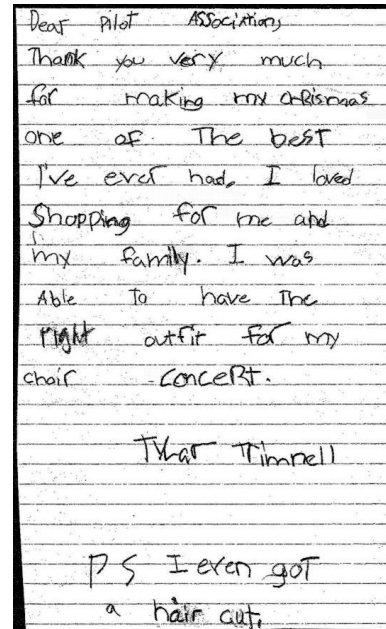 Dear Pilot Association,
Thank you very much
for making my chrismas
one of The best
I've ever had. I loved
Shopping for me and
my family. I was
Able To have The
right outfit for my
choir concert.
Timnell
PS I even got
a hair cut.